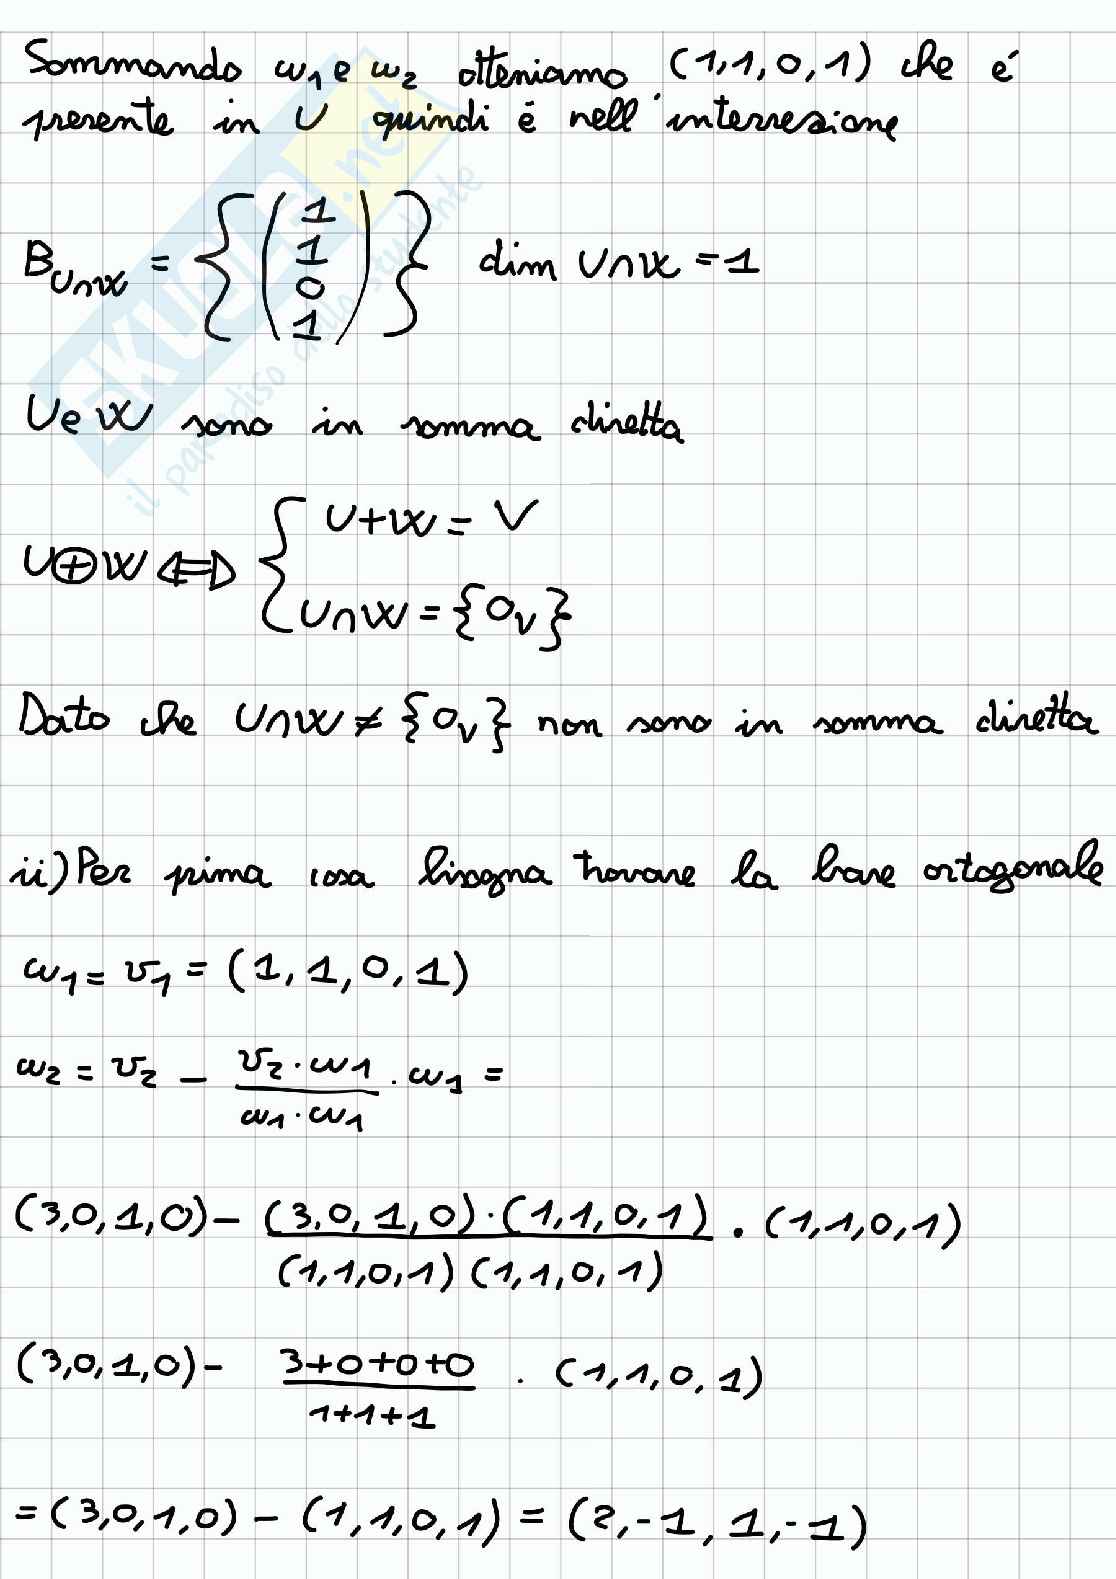 Sommando w₁ e w₂ otteniamo (1,1,0,1) che é
presente in U quindi é nell'intersezione
B_{U∩W} = {(1 1 0 1)} dim U∩W = 1
U e W sono in somma diretta
U⊕W ⟺ { U+W = V
U∩W = {0_V}
Dato che U∩W ≠ {0_V} non sono in somma diretta
ii) Per prima cosa bisogna trovare la base ortogonale
w₁ = v₁ = (1,1,0,1)
w₂ = v₂ − (v₂·w₁)/(w₁·w₁) · w₁ =
(3,0,1,0) − ((3,0,1,0)·(1,1,0,1))/((1,1,0,1)(1,1,0,1)) · (1,1,0,1)
(3,0,1,0) − (3+0+0+0)/(1+1+1) · (1,1,0,1)
= (3,0,1,0) − (1,1,0,1) = (2,-1,1,-1)
SKUOLA.net
il paradiso dello studente